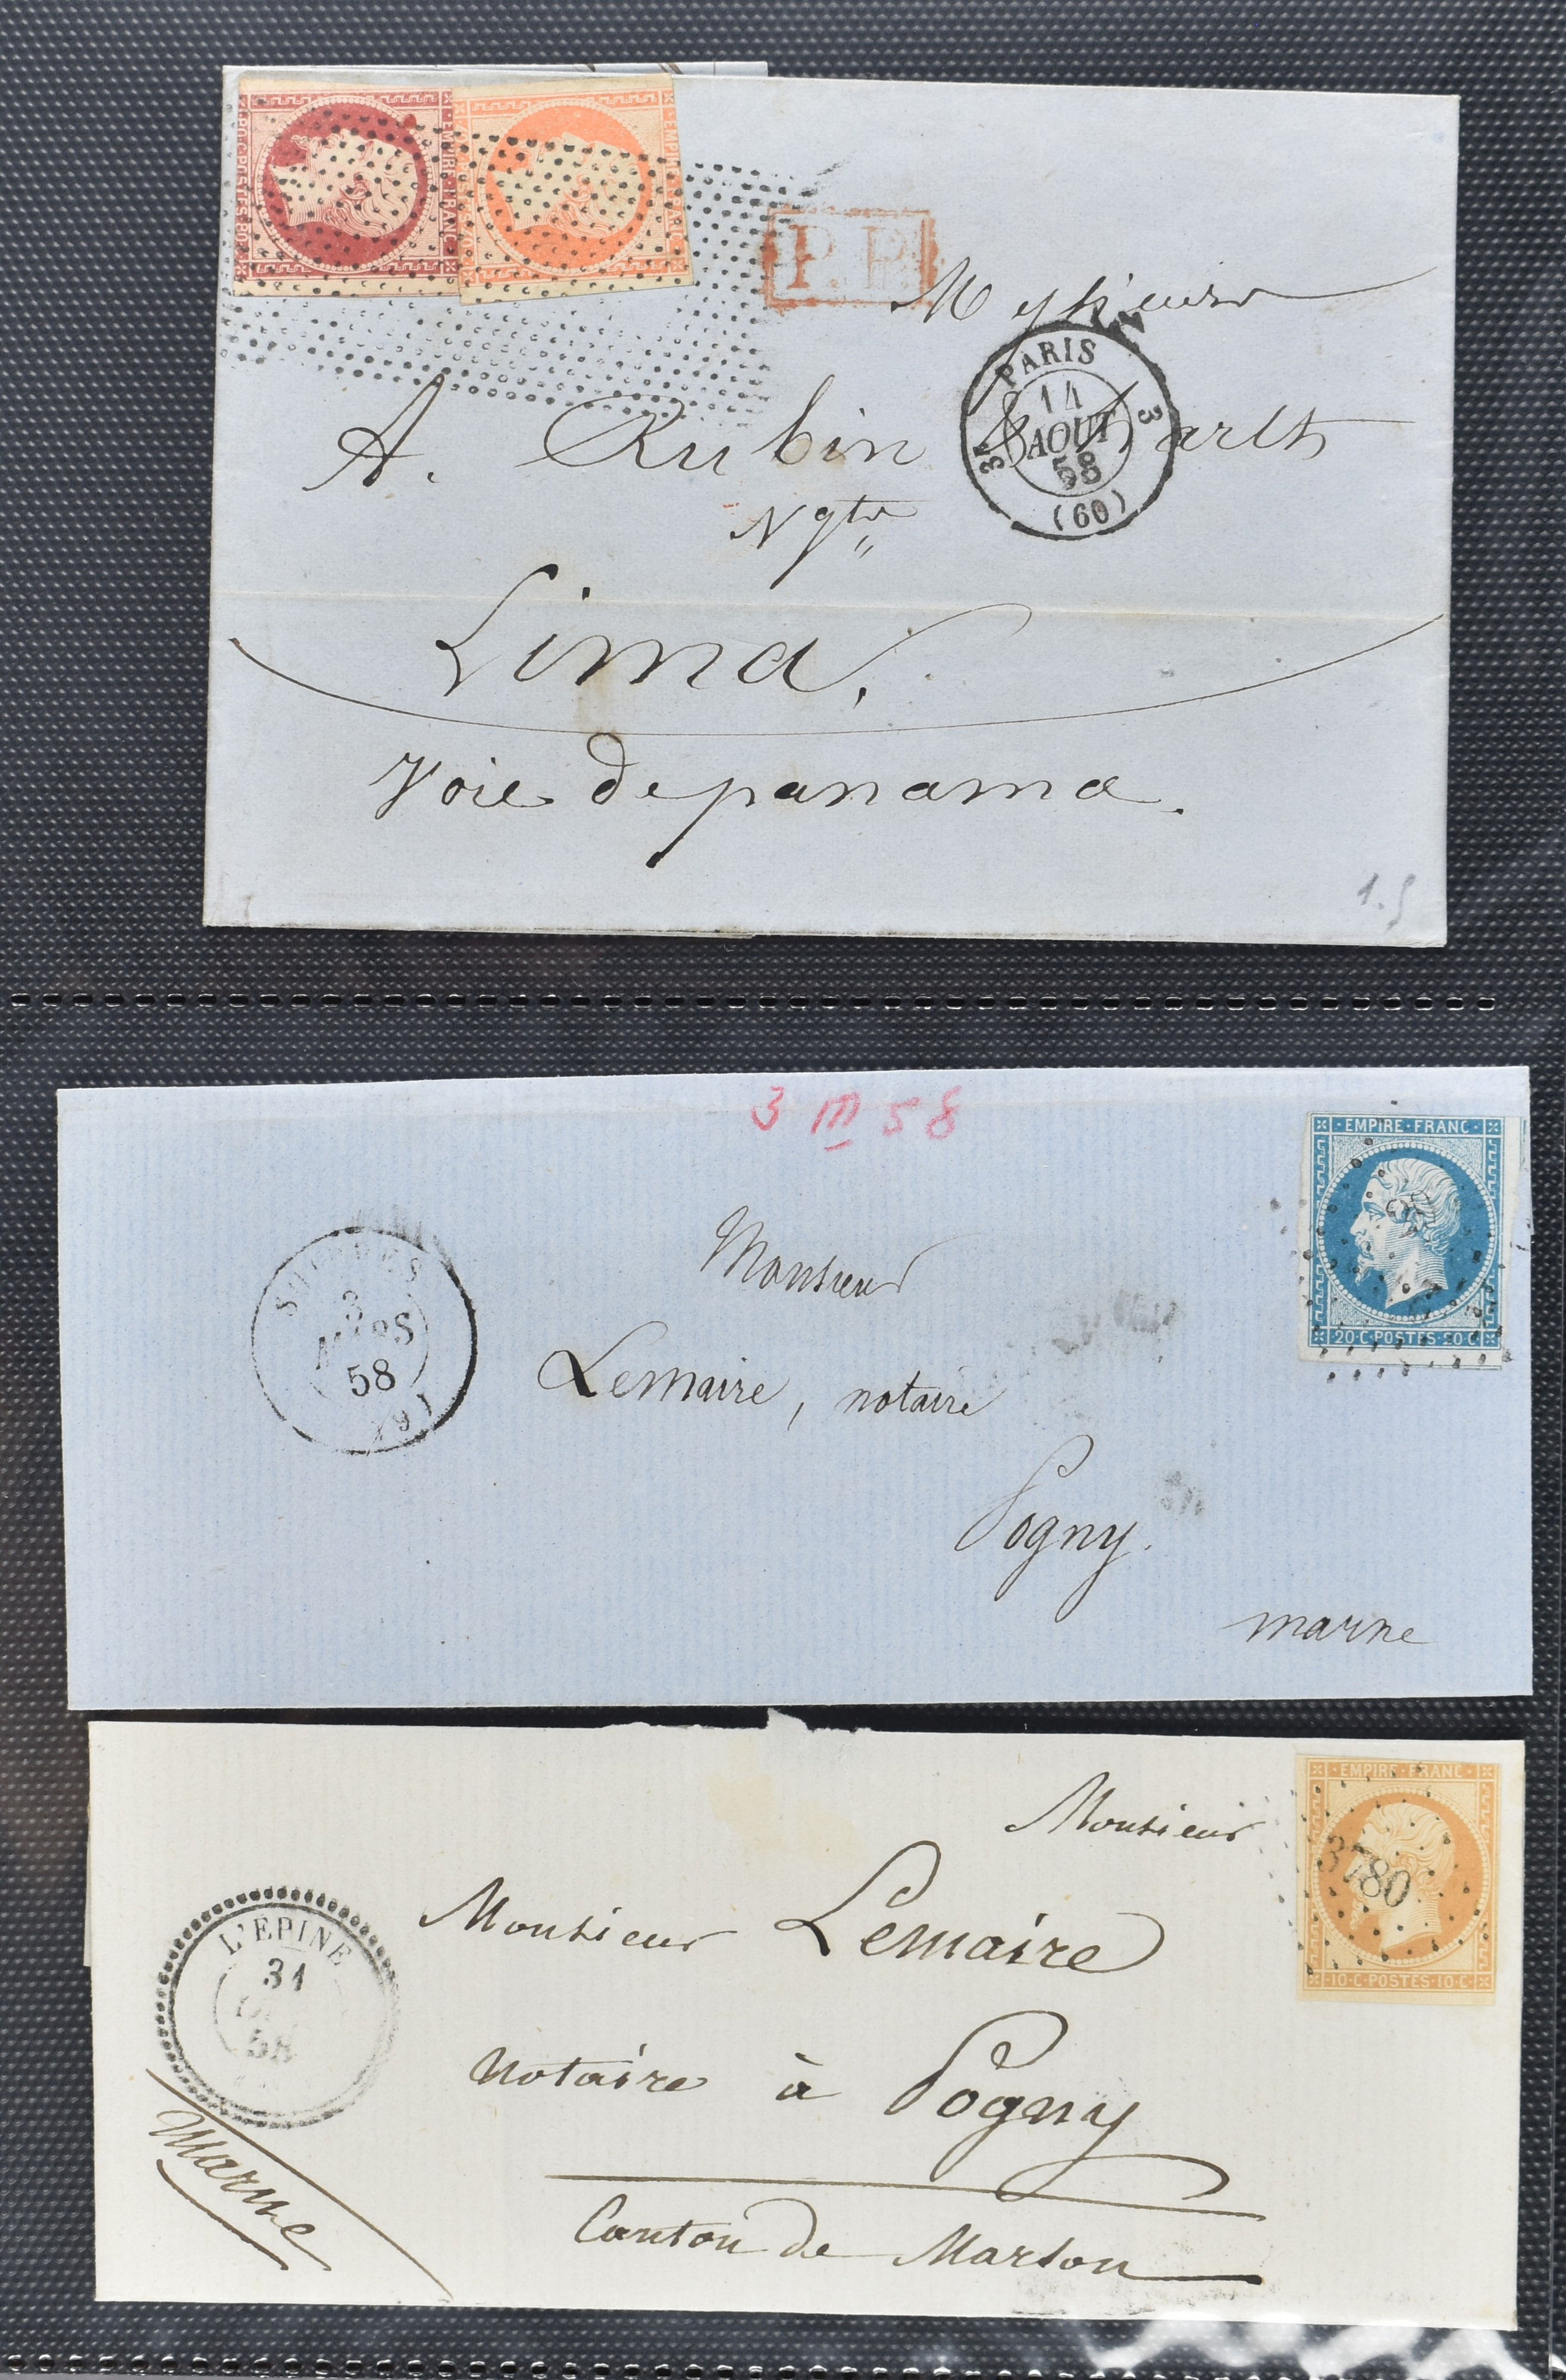 EMPIRE·FRANC·
80·C·POSTES·80·C
P.P.
Messieurs
PARIS
14
AOUT
58
(60)
3E
3
A. Rubin & Barlh
Ngts
Lima.
Voie de panama.
1.5
3 III 58
EMPIRE·FRANC·
20·C·POSTES·20·C·
3
MARS
58
Monsieur
Lemaire, notaire
Pogny.
marne
EMPIRE·FRANC·
3780
·10·C·POSTES·10·C·
Monsieur
L'EPINE
31
58
Monsieur Lemaire
notaire à Pogny
Canton de Marson
Marne